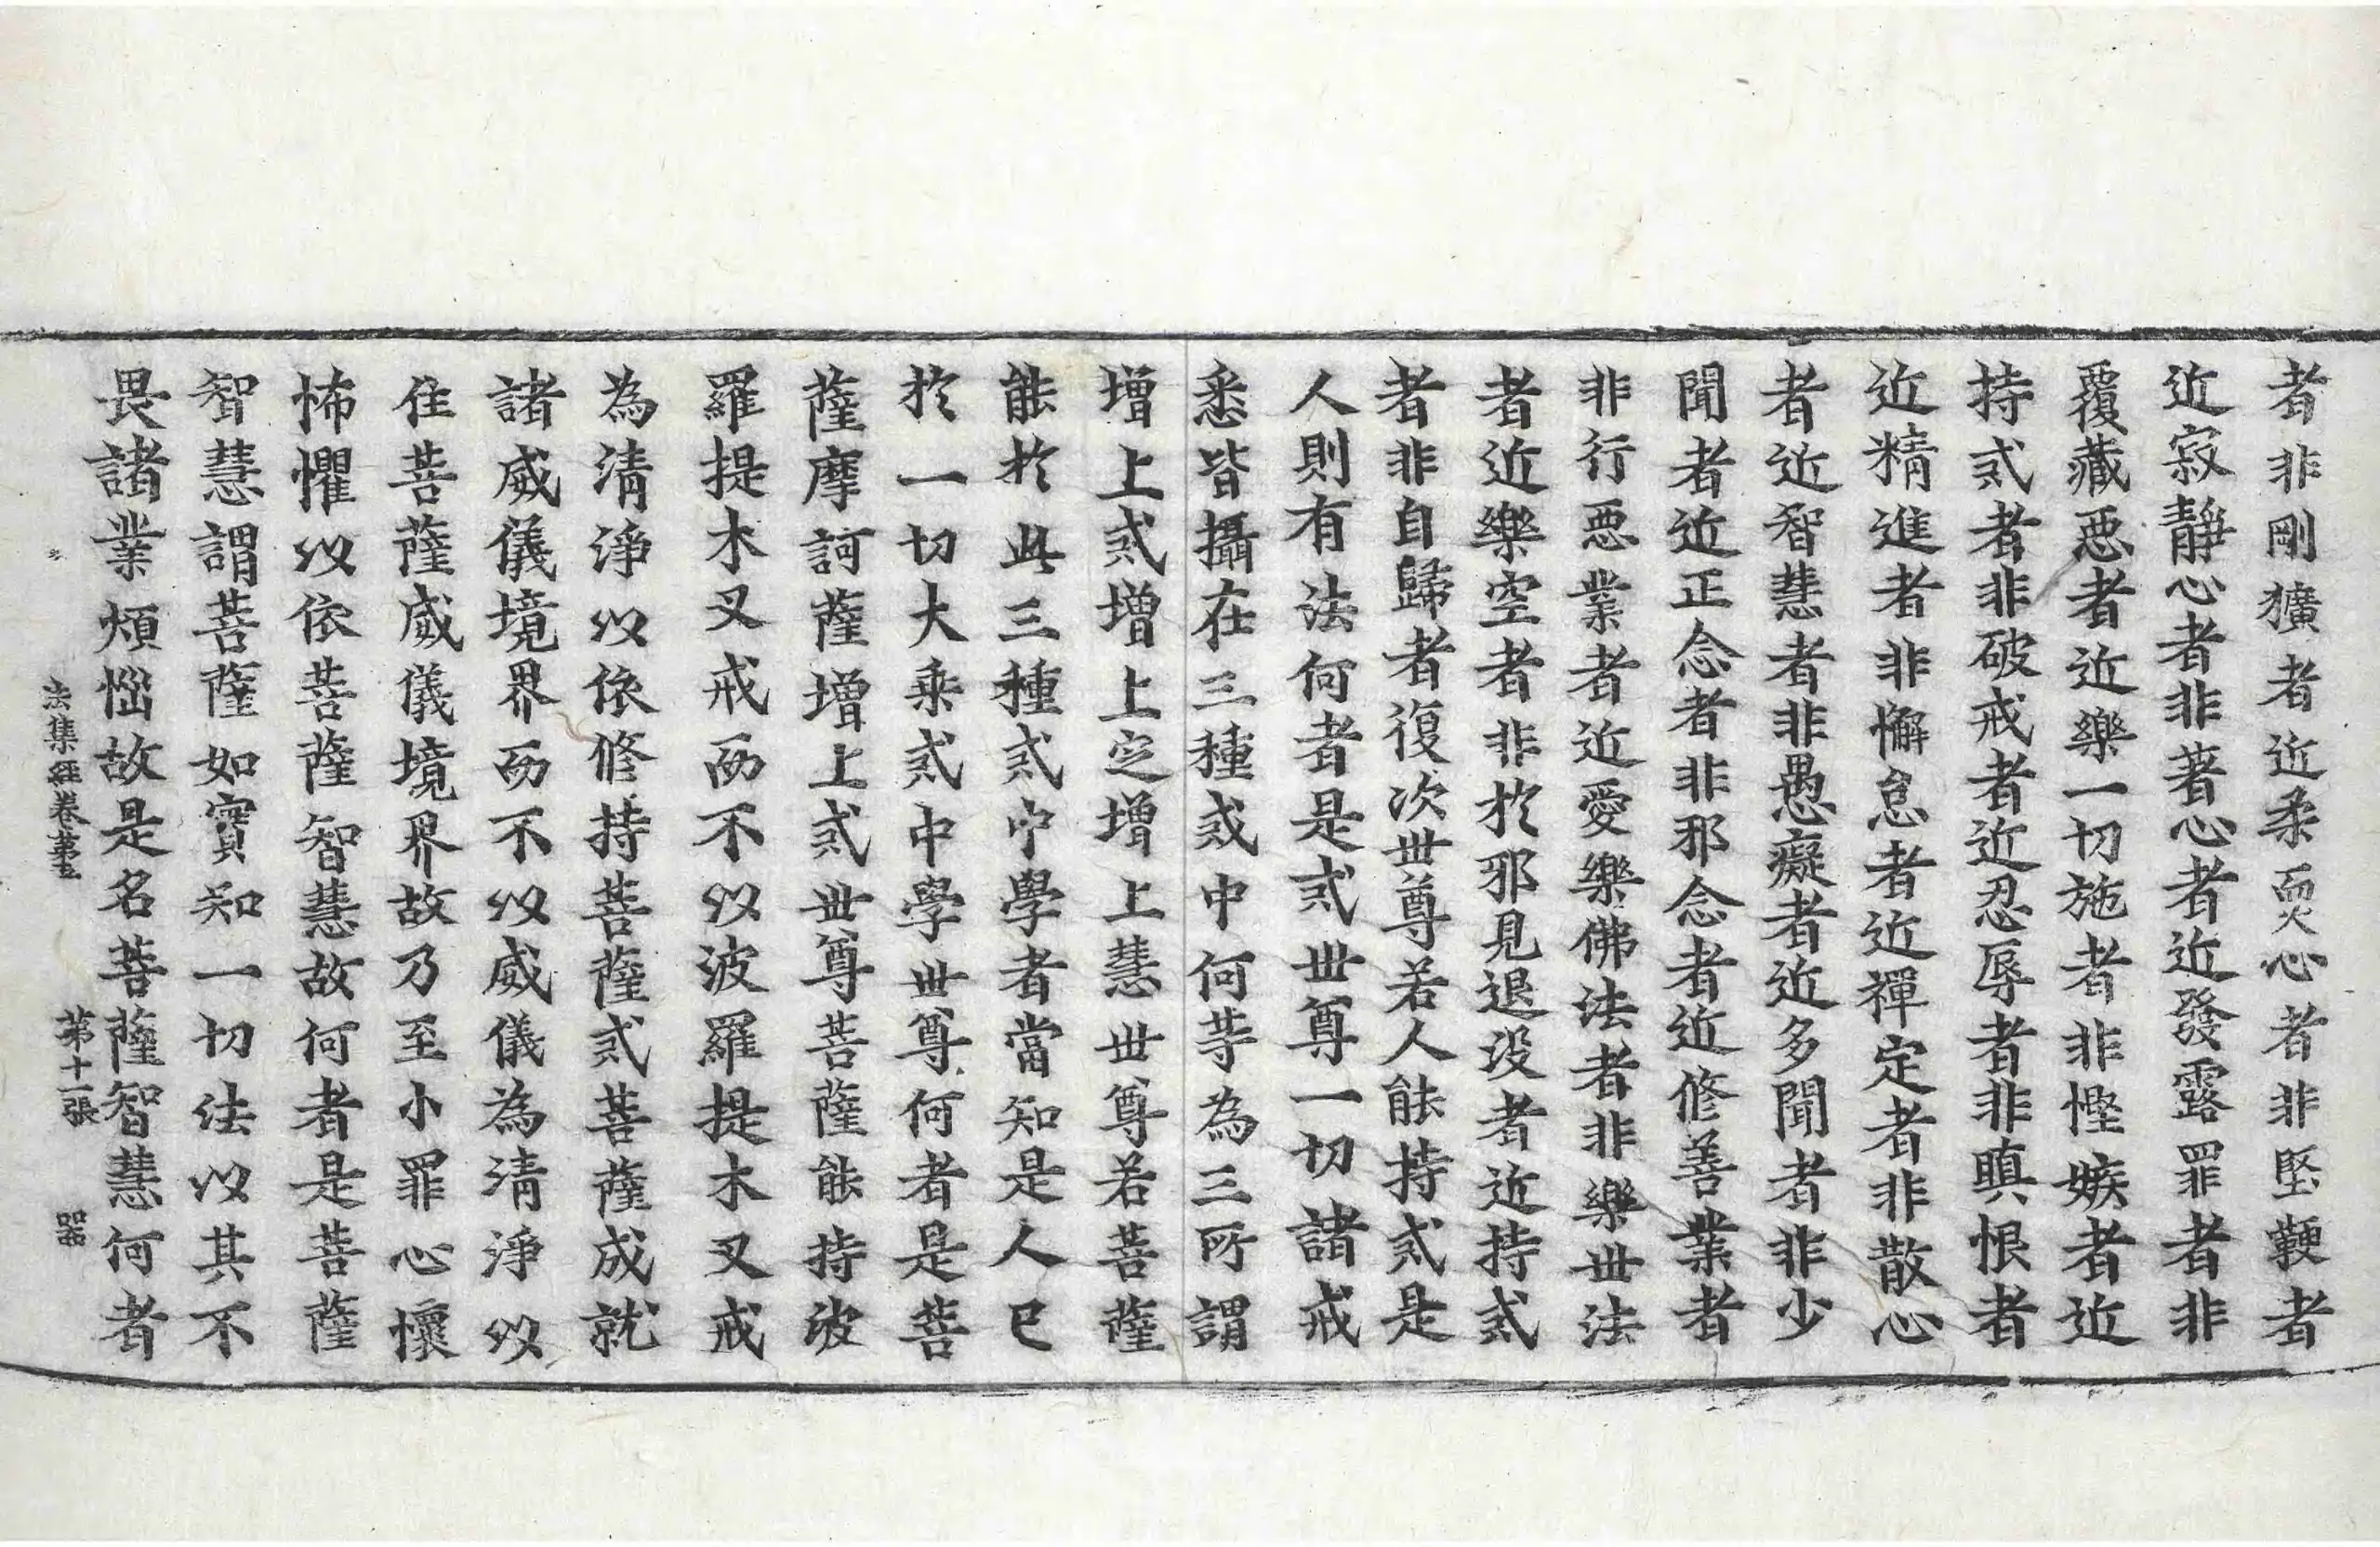 者非剛獷者近柔耎心者非堅鞕者
近寂靜心者非著心者近發露罪者非
覆藏惡者近樂一切施者非慳嫉者近
持戒者非破戒者近忍辱者非瞋恨者
近精進者非懈怠者近禪定者非散心
者近智慧者非愚癡者近多聞者非少
聞者近正念者非邪念者近修善業者
非行惡業者近愛樂佛法者非樂世法
者近樂空者非於邪見退没者近持戒
者非自歸者復次世尊若人能持戒是
人則有法何者是戒世尊一切諸戒
悉皆攝在三種戒中何等為三所謂
增上戒增上定增上慧世尊若菩薩
能於此三種戒中學者當知是人已
於一切大乘戒中學世尊何者是菩
薩摩訶薩增上戒世尊菩薩能持波
羅提木叉戒而不以波羅提木叉戒
為清淨以依修持菩薩戒菩薩成就
諸威儀境界而不以威儀為清淨以
住菩薩威儀境界故乃至小罪心懷
怖懼以依菩薩智慧故何者是菩薩
智慧謂菩薩如實知一切法以其不
畏諸業煩惱故是名菩薩智慧何者
法集經卷第五 第十一張 器